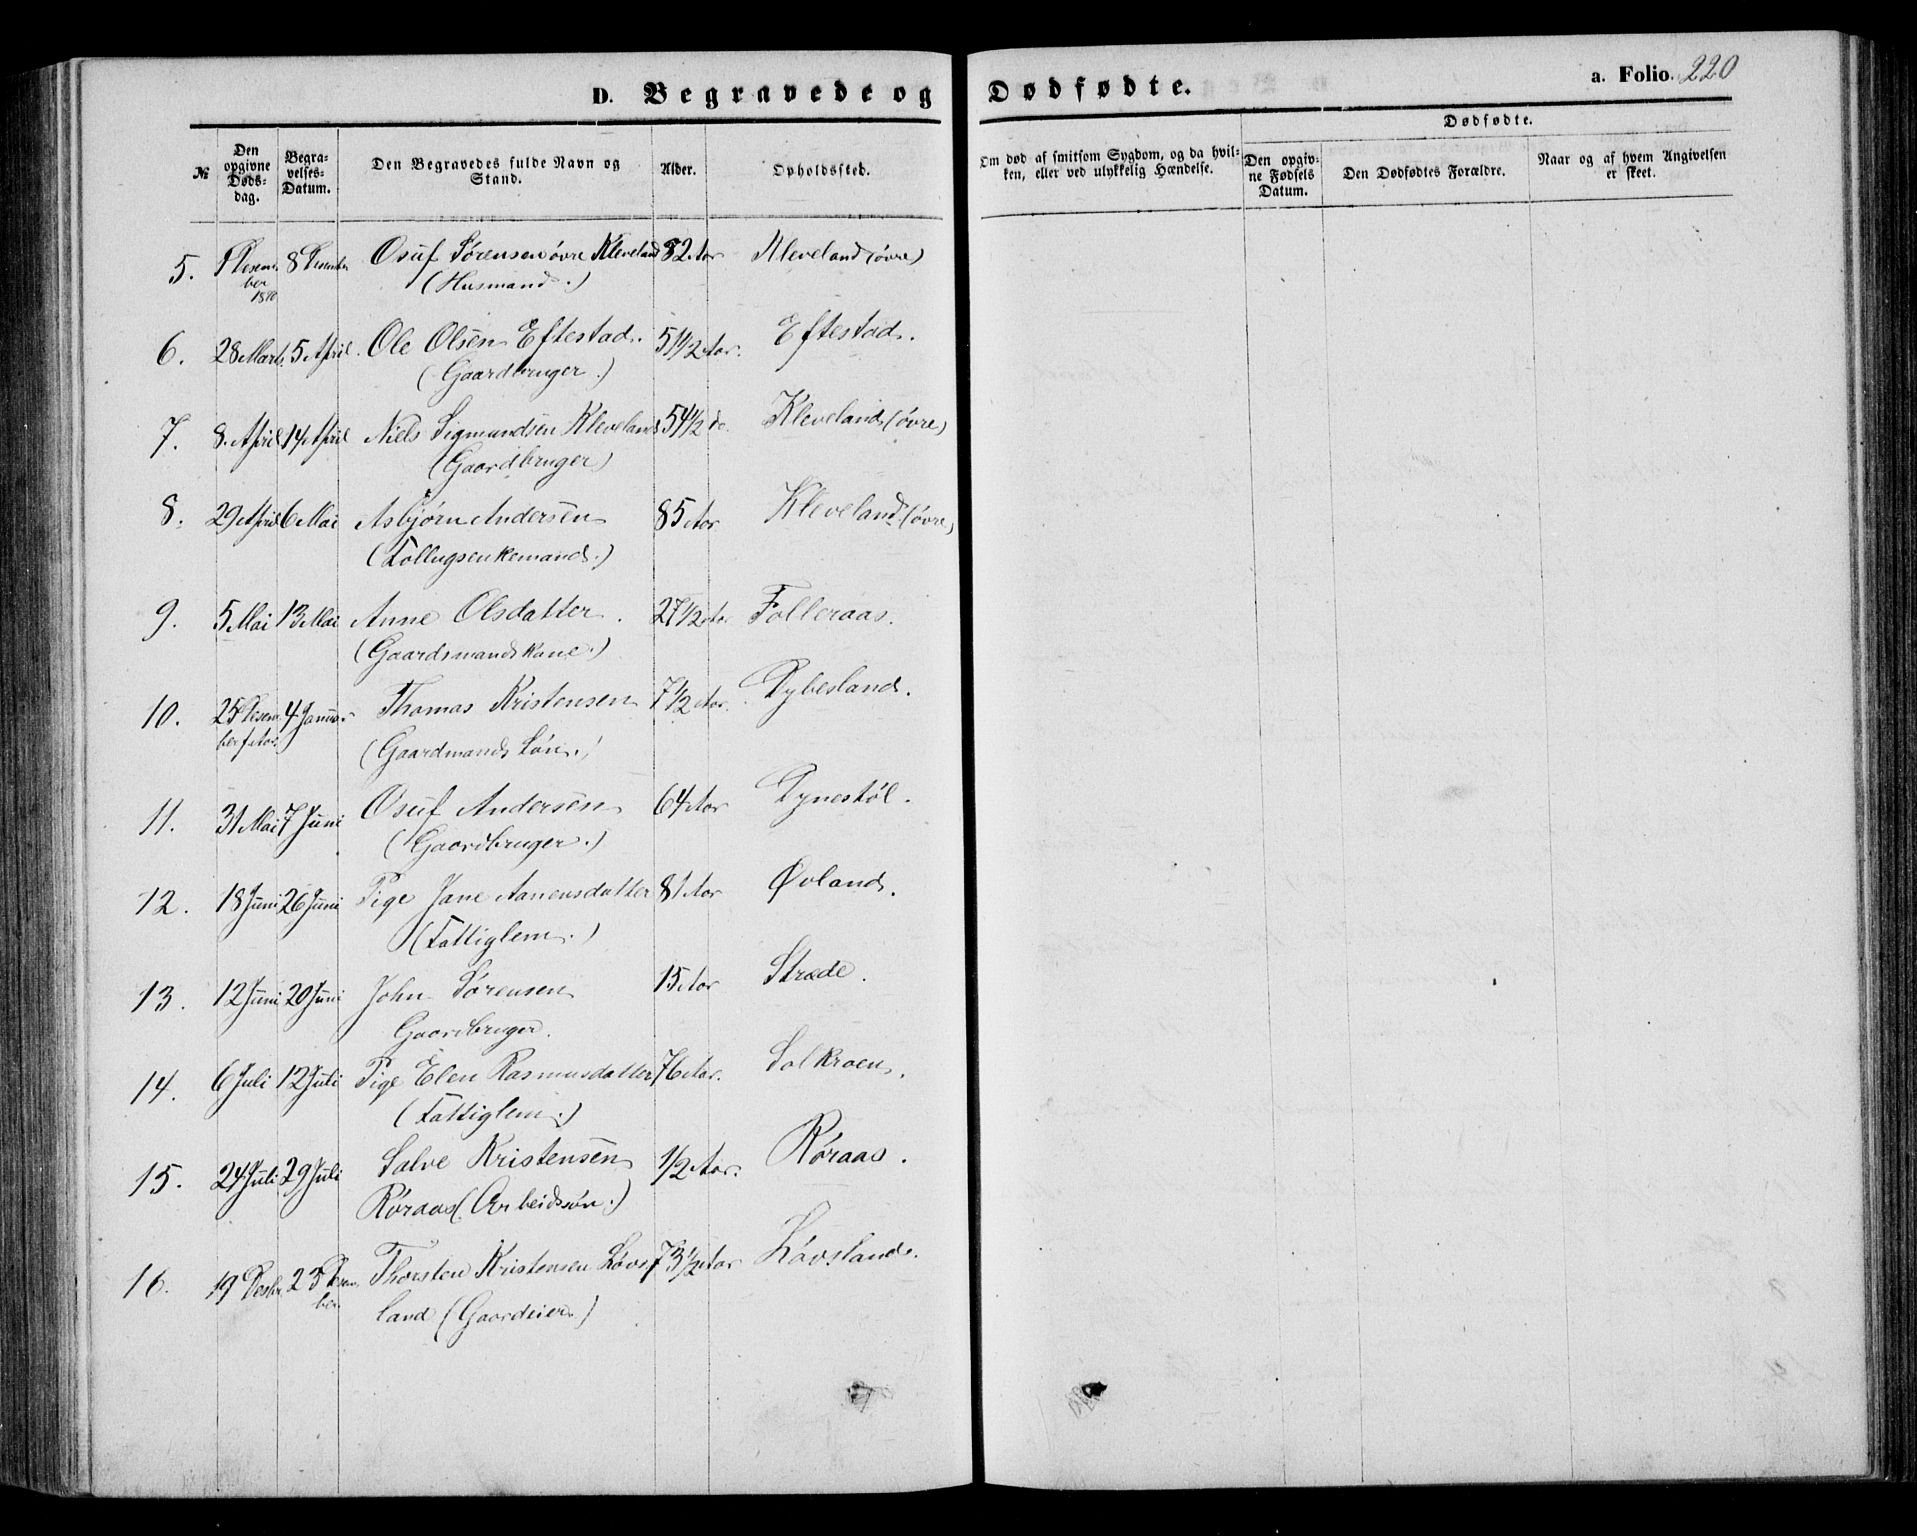 D. Begravede og Dødfødte. a. Folio. 220
№ Den opgivne Døds-dag. Begra-velses-Datum. Den Begravedes fulde Navn og Stand. Alder. Opholdssted. Om død af smitsom Sygdom, og da hvil-ken, eller ved ulykkelig Hændelse. Dødfødte. Den opgiv-ne Fødsels Datum. Den Dødfødtes Forældre. Naar og af hvem Angivelsen er skeet.
5. 1 Desem- 8 Desember Osuf Sørensen øvre Kleveland 82 Aar Kleveland (øvre)
ber (Husmand.)
6. 28 Marts 5 April. Ole Olsen Eftestad. 51 1/2 Aar. Eftestad.
(Gaardbruger.)
7. 8. April 14 April Niels Sigmundsen Kleveland 54 1/2 do. Kleveland (øvre)
(Gaardbruger)
8. 29 April 6 Mai Asbjørn Andersen 85 Aar Kleveland (øvre)
(Follugsenkemand.)
9. 5 Mai 13 Mai Anne Olsdatter. 27 1/2 Aar Folleraas.
(Gaardsmandskone.)
10. 25 Desem- 4 Januar Thomas Kristensen 7 1/2 Aar. Dybesland.
ber f. Aar. (Gaardmands Søn.)
11. 31 Mai 7 Juni Osuf Andersen 64 Aar Dynestøl.
(Gaardbruger.)
12. 18 Juni 26 Juni Pige Jane Aanensdatter 81 Aar Øvland.
(Fattiglem.)
13. 12 Juni 20 Juni John Sørensen 15 Aar Stræde.
Gaardbruger.
14. 6 Juli 12 Juli Pige Elen Rasmusdatter 76 Aar. Salkraen.
(Fattiglem.)
15. 24 Juli 29 Juli Salve Kristensen 1/2 Aar. Røraas.
Røraas (Arbeidssøn.)
16. 19 Desbr. 23 Desem- Thorsten Kristensen Løvs- 73 1/2 Aar Løvsland.
ber land (Gaardeier)